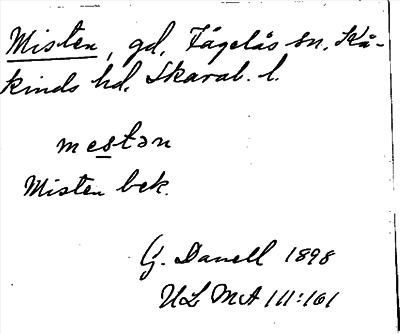 Misten, gd, Fågelås sn. Kå-
kinds hd. Skarab. l.
mestən
Misten bek.
G. Danell 1898
ULMA 111:161